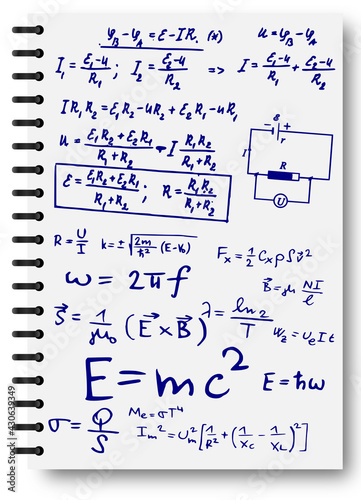 φ_B - φ_A = E - IR. (*)   u = φ_B - φ_A
I_1 = (E_1 - u)/R_1 ; I_2 = (E_2 - u)/R_2 => I = (E_1 - u)/R_1 + (E_2 - u)/R_2
I R_1 R_2 = E_1 R_2 - u R_2 + E_2 R_1 - u R_1
u = (E_1 R_2 + E_2 R_1)/(R_1 + R_2) - I (R_1 R_2)/(R_1 + R_2)
E = (E_1 R_2 + E_2 R_1)/(R_1 + R_2) ; R = (R_1 R_2)/(R_1 + R_2)
- ε +
r
I
R
U
R = U/I   k = ± √(2m/ħ² (E - V_0))   F_x = 1/2 C_x ρ S v²
ω = 2πf   B⃗ = μ NI/l
S⃗ = 1/μ_0 (E⃗ × B⃗)   λ = ln 2/T   W_z = U_e I t
E = mc²   E = ħω
σ = Q/S   M_e = σT⁴
I_m² = U_m² [1/R² + (1/X_C - 1/X_L)²]
Adobe Stock | #430639349